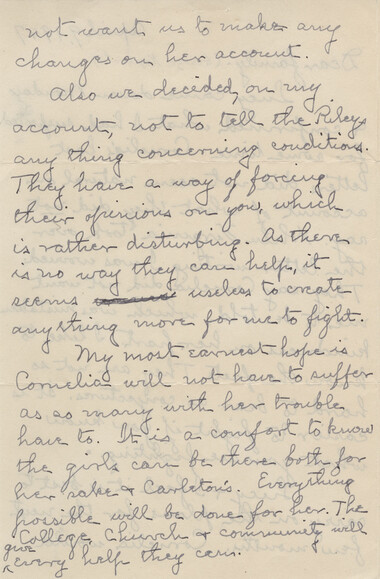 not want us to make any
changes on her account.
Also we decided, on my
account, not to tell the Rileys
any thing concerning conditions.
They have a way of forcing
their opinions on you, which
is rather disturbing. As there
is no way they can help, it
seems useless to create
anything more for me to fight.
My most earnest hope is
Cornelia will not have to suffer
as so many with her trouble
have to. It is a comfort to know
the girls can be there both for
her sake & Carleton's. Everything
possible will be done for her. The
College, Church & community will
give every help they can.